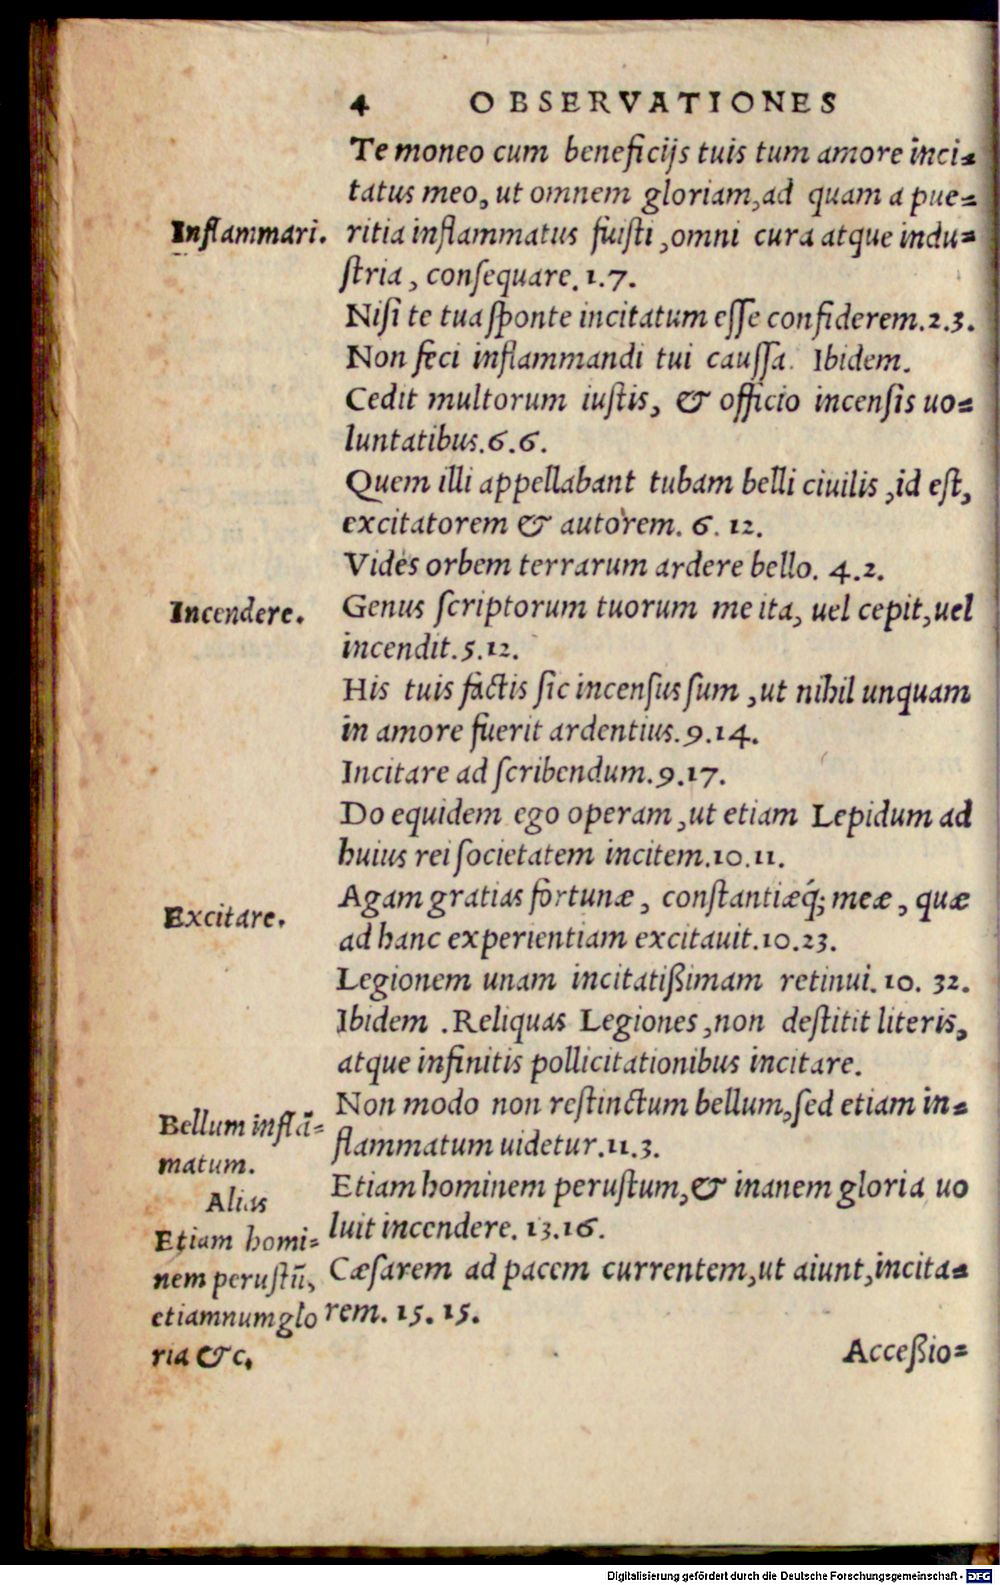 4 OBSERVATIONES
Te moneo cum beneficijs tuis tum amore inci=
tatus meo, ut omnem gloriam, ad quam a pue=
Inflammari. ritia inflammatus fuiſti, omni cura atque indu=
ſtria, conſequare. 1.7.
Niſi te tua ſponte incitatum eſſe confiderem. 2.3.
Non feci inflammandi tui cauſſa. Ibidem.
Cedit multorum iuſtis, & officio incenſis uo=
luntatibus. 6.6.
Quem illi appellabant tubam belli ciuilis, id eſt,
excitatorem & autorem. 6. 12.
Vides orbem terrarum ardere bello. 4.2.
Incendere. Genus ſcriptorum tuorum me ita, uel cepit, uel
incendit. 5.12.
His tuis factis ſic incenſus ſum, ut nihil unquam
in amore fuerit ardentius. 9.14.
Incitare ad ſcribendum. 9.17.
Do equidem ego operam, ut etiam Lepidum ad
huius rei ſocietatem incitem. 10.11.
Agam gratias fortunæ, conſtantiæq́; meæ, quæ
Excitare. ad hanc experientiam excitauit. 10.23.
Legionem unam incitatißimam retinui. 10. 32.
Ibidem. Reliquas Legiones, non deſtitit literis,
atque infinitis pollicitationibus incitare.
Non modo non reſtinctum bellum, ſed etiam in=
Bellum inflā= flammatum uidetur. 11.3.
matum. Etiam hominem peruſtum, & inanem gloria uo
Alias luit incendere. 13.16.
Etiam homi=
nem peruſtū, Cæſarem ad pacem currentem, ut aiunt, incita=
etiamnum glo rem. 15. 15.
ria &c. Acceßio=
Digitalisierung gefördert durch die Deutsche Forschungsgemeinschaft - DFG